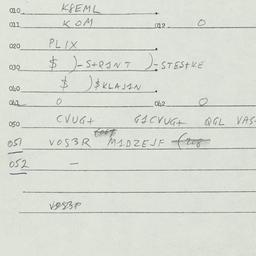 010 K8EML
011 KOM 012 0
020 PLIX
030 $ )-S+RINT )-STES+KE
040 $ )$KLAJIN
041 0 042 0
050 CVUG+ GICVUG+ QGL VAS
051 VOS3R MIDZEJF
052 -
VOS3R